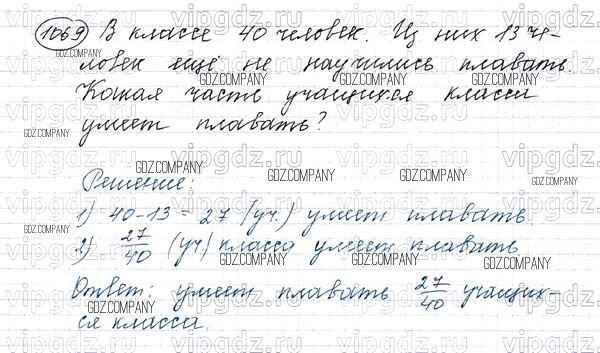 1069 В классе 40 человек. Из них 13 че-
ловек ещё не научились плавать.
Какая часть учащихся класса
умеет плавать?
Решение:
1) 40-13 = 27 (уч.) умеет плавать.
2) 27/40 (уч.) класса умеет плавать
Ответ: умеет плавать 27/40 учащих-
ся класса.